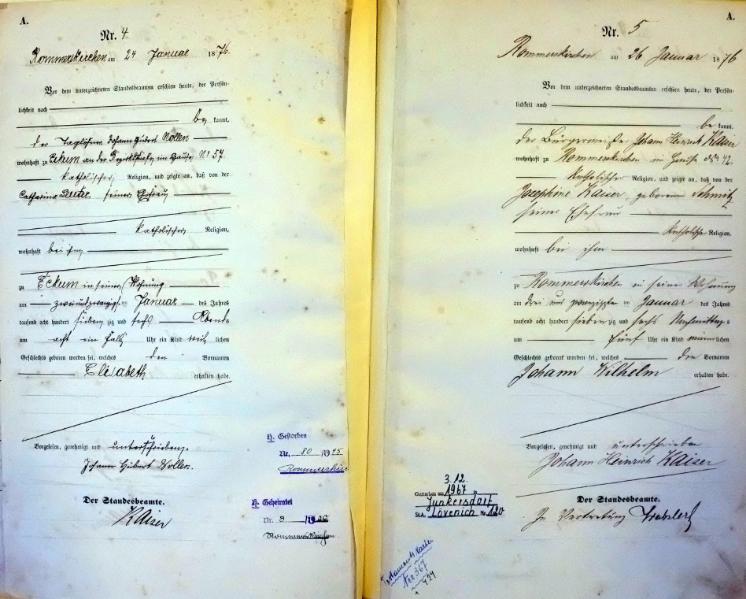 A.
Nr. 4
Rommerskirchen am 24 Januar 1876.
Vor dem unterzeichneten Standesbeamten erschien heute, der Persön-
lichkeit nach
be kannt,
der Tagelöhner Johann Hubert Nollen
wohnhaft zu Eckum an der Bezirksstraße, im Hause No 57.
katholischer Religion, und zeigte an, daß von der
Catharina seiner Ehefrau
katholischer Religion,
wohnhaft bei ihm
zu Eckum in seiner Wohnung
am zweiundzwanzigsten Januar des Jahres
tausend acht hundert siebenzig und sechs Abends
um acht ein halb Uhr ein Kind weib lichen
Geschlechts geboren worden sei, welches den Vornamen
Elisabeth
erhalten habe.
Vorgelesen, genehmigt und unterschrieben.
Johann Hubert Nollen.
Der Standesbeamte.
Kaiser
H. Gestorben
Nr. 80/1945
Rommerskirchen
H. Geheiratet
Nr. 9
Rommerskirchen
A.
Nr. 5
Rommerskirchen am 26 Januar 1876
Vor dem unterzeichneten Standesbeamten erschien heute, der Persön-
lichkeit nach
be kannt,
der Bürgermeister Johann Heinrich Kaiser
wohnhaft zu Rommerskirchen im Hause No 42
katholischer Religion, und zeigte an, daß von der
Josephine Kaiser, geborenen Schmitz
seine Ehefrau
katholischer Religion,
wohnhaft bei ihm
zu Rommerskirchen in seiner Wohnung
am drei und zwanzigsten Januar des Jahres
tausend acht hundert siebenzig und sechs Nachmittags
um fünf Uhr ein Kind männlichen
Geschlechts geboren worden sei, welches den Vornamen
Johann Wilhelm
erhalten habe.
Vorgelesen, genehmigt und unterschrieben
Johann Heinrich Kaiser
Der Standesbeamte.
In Vertretung
3.12
1967
Junkersdorf
StA. Lövenich Nr. 120